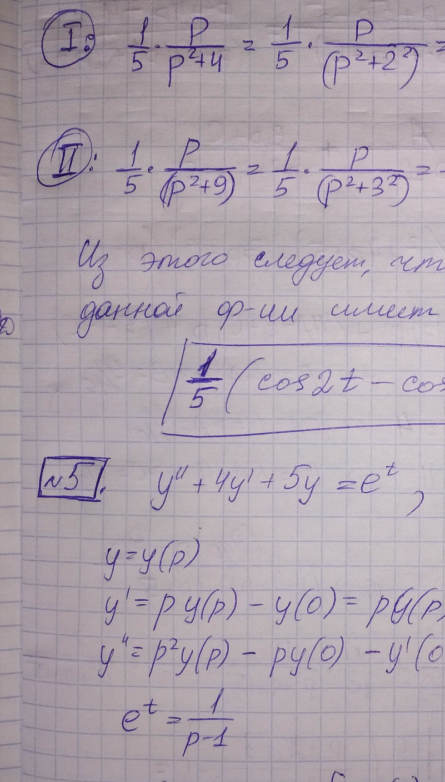 I: 1/5 · p/p²+4 = 1/5 · p/(p²+2²) =
II: 1/5 · p/(p²+9) = 1/5 · p/(p²+3²) =
Из этого следует, чт
данной ф-ии имеет
1/5 (cos2t - cos
№5. y'' + 4y' + 5y = e^t,
y = y(p)
y' = py(p) - y(0) = py(p)
y'' = p²y(p) - py(0) - y'(0
e^t = 1/p-1